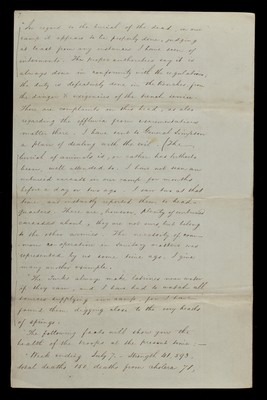 "In regard to the burial of the dead, in our
camp it appears to be properly done, judging
at least from any evidences I have seen of
interments. The proper authorities say it is
always done in conformity with the regulations.
the duty is defectively done in the trenches from
the danger & exposure of the burial service.
There are complaints on this head, as also
regarding the effluvia from accumulations
matter there. I have sent to General Simpson
a plan of dealing with the evil. (The
burial of animals is, or rather has hitherto
been, well attended to. I have not seen an
unburied carcass in our camp for months
before a day or two ago. I saw two at that
time, and instantly reported them to head-
quarters. There are, however, plenty of unburied
carcasses about, they are not ours but belong
to the other armies. The necessity of com-
-mon co-operation in sanitary matters was
represented by us some time ago. I give
many another example.
"The Turks always make latrines near water
if they can, and I have had to watch all
sources supplying our camp for I have
found them digging close to the very heads
of springs.
"The following facts will show you the
health of the troops at the present time. —
Week ending July 7. — Strength 41,593.
total deaths 142 deaths from cholera 71.